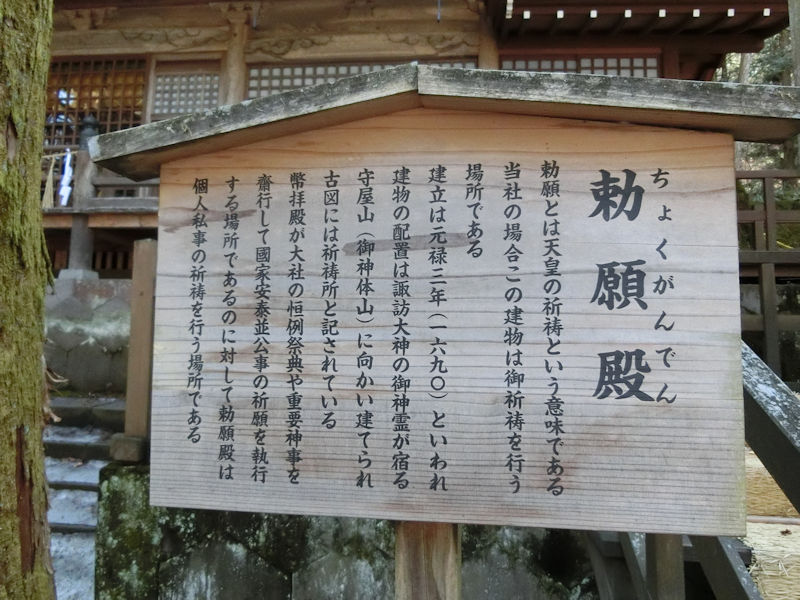 ちょくがんでん
勅願殿
勅願とは天皇の祈祷という意味である
当社の場合この建物は御祈祷を行う
場所である
建立は元禄三年（一六九〇）といわれ
建物の配置は諏訪大神の御神霊が宿る
守屋山（御神体山）に向かい建てられ
古図には祈祷所と記されている
幣拝殿が大社の恒例祭典や重要神事を
齋行して國家安泰並公事の祈願を執行
する場所であるのに対して勅願殿は
個人私事の祈祷を行う場所である